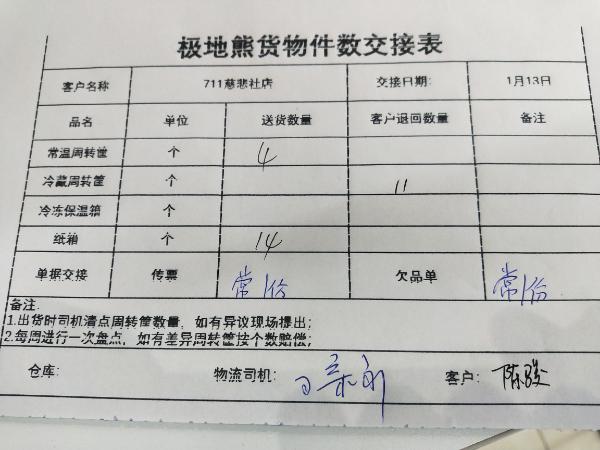 极地熊货物件数交接表
客户名称 711慈悲社店 交接日期: 1月13日
品名 单位 送货数量 客户退回数量 备注
常温周转筐 个 4
冷藏周转筐 个 11
冷冻保温箱 个
纸箱 个 14
单据交接 传票 常1份 欠品单 常1份
备注:
1.出货时司机清点周转筐数量，如有异议现场提出;
2.每周进行一次盘点，如有差异周转筐按个数赔偿;
仓库: 物流司机: 客户: 陈骏